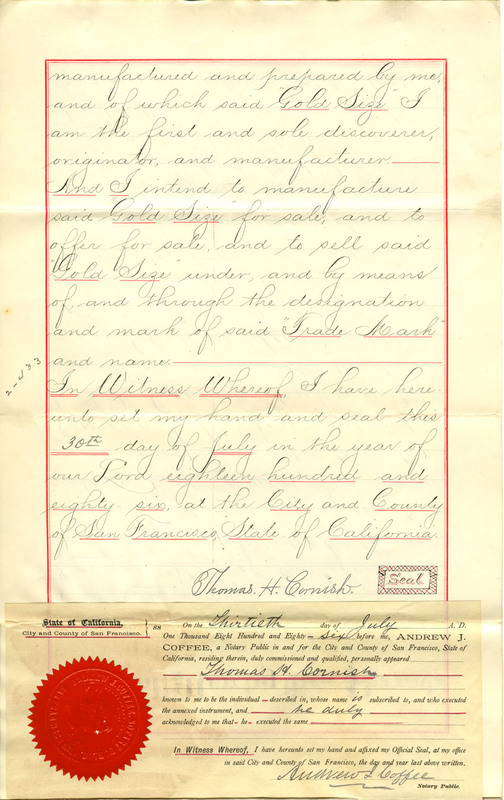 manufactured and prepared by me,
and of which said "Gold Size" I
am the first and sole discoverer,
originator, and manufacturer.
And I intend to manufacture
said "Gold Size" for sale, and to
offer for sale, and to sell said
"Gold Size" under, and by means
of, and through the designation
and mark of said "Trade Mark"
and name.
In Witness Whereof, I have here-
unto set my hand and seal this
30th day of July in the year of
our Lord eighteen hundred and
eighty six, at the City and County
of San Francisco, State of California.
Thomas. H. Cornish.
Seal
State of California,
City and County of San Francisco.
ss
On the Thirtieth day of July A. D.
One Thousand Eight Hundred and Eighty-six before me, ANDREW J.
COFFEE, a Notary Public in and for the City and County of San Francisco, State of
California, residing therein, duly commissioned and qualified, personally appeared
Thomas H. Cornish
known to me to be the individual described in, whose name is subscribed to, and who executed
the annexed instrument, and he duly
acknowledged to me that he executed the same
In Witness Whereof, I have hereunto set my hand and affixed my Official Seal, at my office
in said City and County of San Francisco, the day and year last above written.
Andrew J. Coffee
Notary Public.